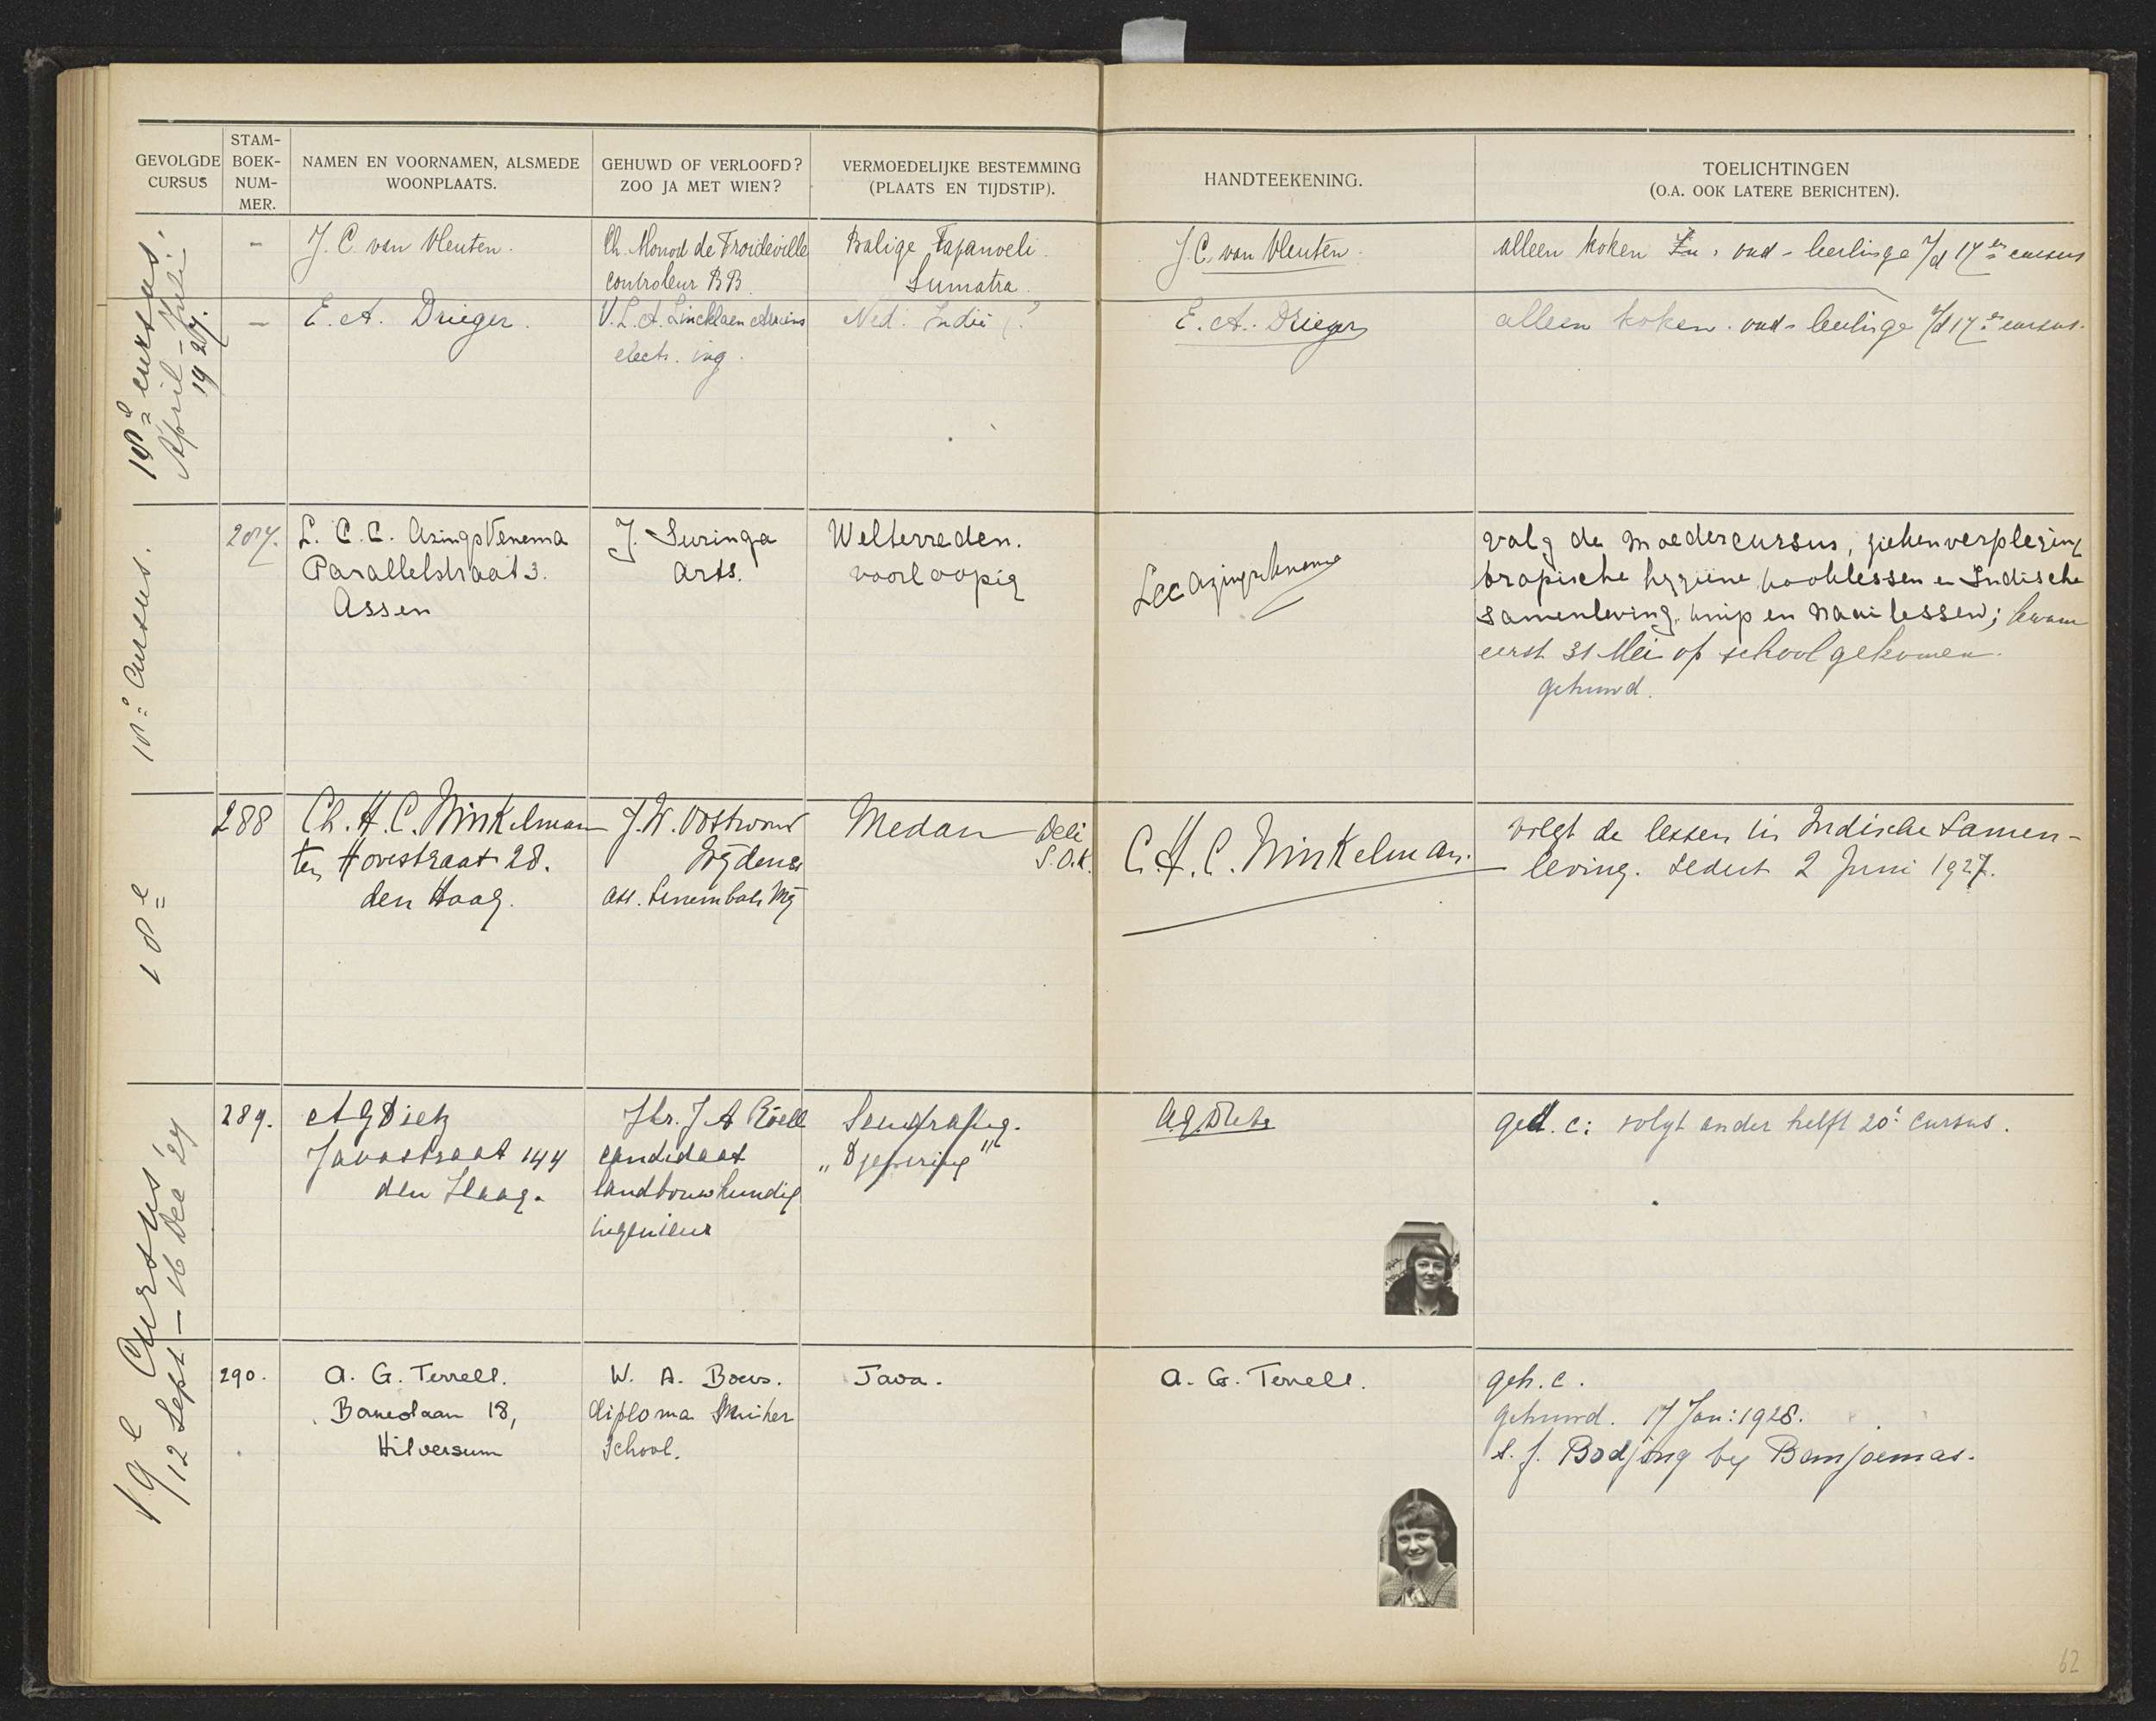 GEVOLGDE CURSUS
STAM-BOEK-NUM-MER.
NAMEN EN VOORNAMEN, ALSMEDE WOONPLAATS.
GEHUWD OF VERLOOFD? ZOO JA MET WIEN?
VERMOEDELIJKE BESTEMMING (PLAATS EN TIJDSTIP).
HANDTEEKENING.
TOELICHTINGEN (O.A. OOK LATERE BERICHTEN).
18e cursus.
April - Juli
1927.
-
J. C. van Vleuten.
Ch. Monod de Froideville
controleur BB.
Balige Tapanoeli.
Sumatra.
J. C. van Vleuten.
alleen koken oud-leerlinge v/d 17en cursus
-
E. A. Drieger.
V. L. A. Lincklaen Arriëns
electr. ing.
Ned. Indië (?
E. A. Drieger
alleen koken. oud-leerlinge v/d 17en cursus.
18e Cursus.
287.
L. C. C. Azings Venema
Parallelstraat 3.
Assen
J. Suringa
Arts.
Weltevreden.
voorloopig
LCC Azings Venema
volg de moedercursus, ziekenverpleging
tropische hygiëne kooklessen en Indische
samenleving, knip en naailessen; kwam
eerst 31 Mei op school gekomen.
gehuwd.
18e
288
Ch. H. C. Winkelman
ten Hovestraat 28.
den Haag.
J. W. Oostwoud
Wijdenes
ass. Senembah Mij
Medan Deli
S.O.K.
C. H. C. Winkelman.
volgt de lessen in Indische Samen-
leving. sedert 2 Juni 1927.
19e Cursus,
12 Sept - 16 Dec '27
289.
A G Dietz
Javastraat 144
den Haag.
Jhr. J A Röell
candidaat
landbouwkundig
ingenieur
A G Dietz
ged. c: volgt ander helft 20e cursus.
290.
A. G. Terrell.
18,
Hilversum
W. A. Boers.
diploma Suiker
School.
Java.
A. G. Terrell.
geh. c.
gehuwd. 17 Jan: 1928.
s. f. Bodjong bij Banjoemas.
62